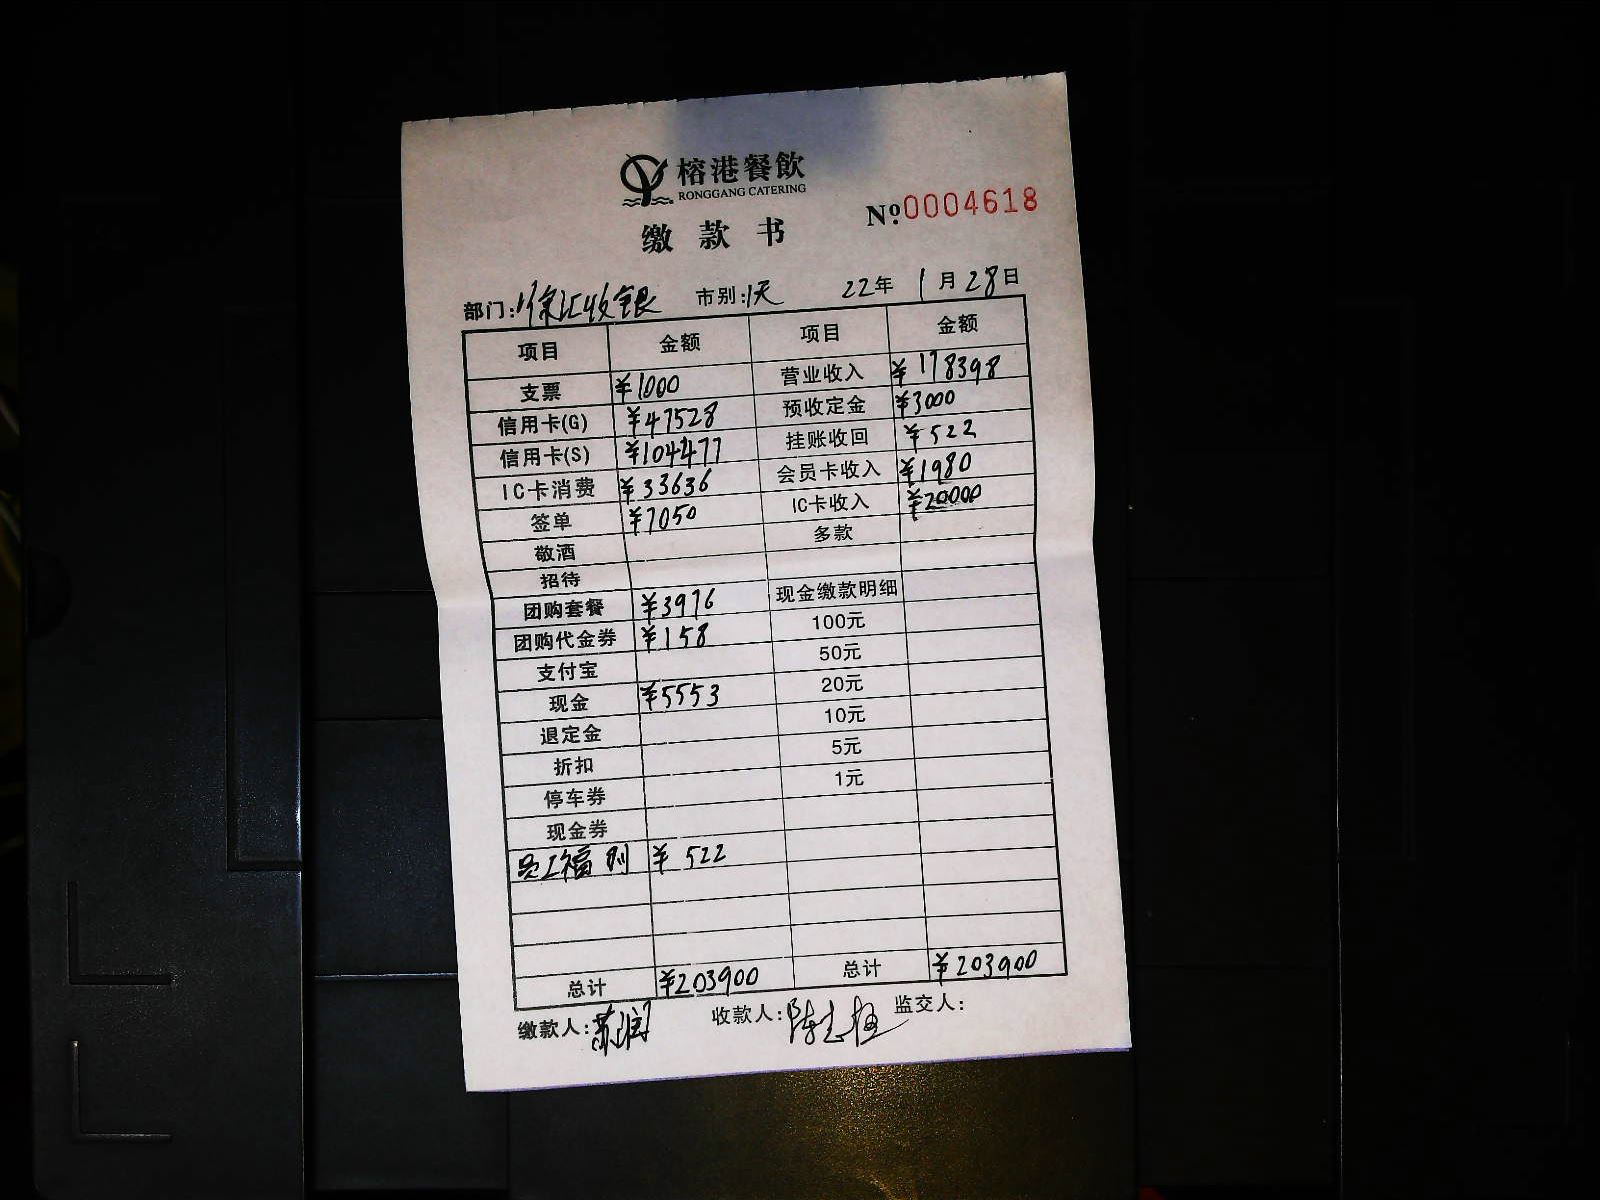 榕港餐飲
RONGGANG CATERING
缴款书 Nº:0004618
部门:徐汇收银 市别:1天 22年 1月28日
项目 金额 项目 金额
支票 ¥1000 营业收入 ¥178398
信用卡(G) ¥47528 预收定金 ¥3000
信用卡(S) ¥104477 挂账收回 ¥522
IC卡消费 ¥33636 会员卡收入 ¥1980
签单 ¥7050 IC卡收入 ¥20000
敬酒 多款
招待
团购套餐 ¥3976 现金缴款明细
团购代金券 ¥158 100元
支付宝 50元
现金 ¥5553 20元
退定金 10元
折扣 5元
停车券 1元
现金券
员工福利 ¥522
总计 ¥203900 总计 ¥203900
缴款人: 收款人: 监交人: